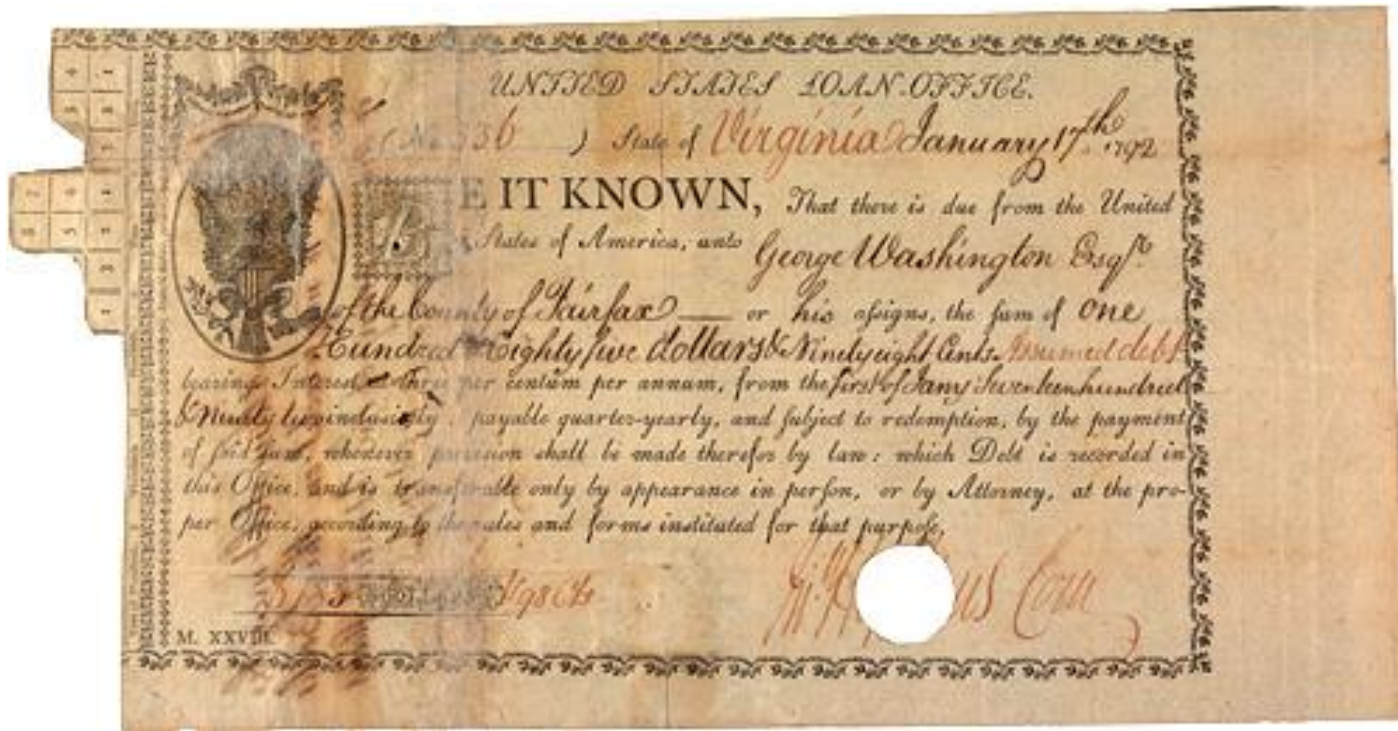 UNITED STATES LOAN-OFFICE.
(No 336 ) State of Virginia January 17th 1792
BE IT KNOWN, That there is due from the United
States of America, unto George Washington Esqr.
of the County of Fairfax — or his aſsigns, the ſum of one
Hundred & Eighty five dollars & Ninety eight Cents Assumed debt
bearing Intereſt at three per centum per annum, from the first of Jany Seventeen hundred
& Ninety two inclusively payable quarter-yearly, and ſubject to redemption, by the payment
of ſaid ſum, whenever proviſion ſhall be made therefor by law: which Debt is recorded in
this Office, and is tranſferable only by appearance in perſon, or by Attorney, at the pro-
per Office, according to the rules and forms inſtituted for that purpoſe.
98 Cts
M. XXVIII.
Com